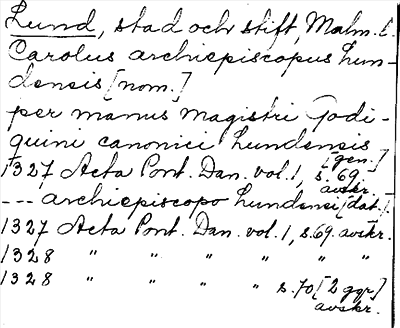 Lund, stad och stift Malm. l.
Carolus archiepiscopus lun-
densis [nom.]
per manus magistri Godi-
quini canonici lundensis
[gen.]
1327 Acta Pont. Dan. vol. 1, s. 69.
avskr.
--- archiepiscopo lundensi [dat.]
1327 Acta Pont. Dan. vol. 1, s. 69 avskr.
1328 " " " " " "
1328 " " " " s. 70 [2 ggr]
avskr.